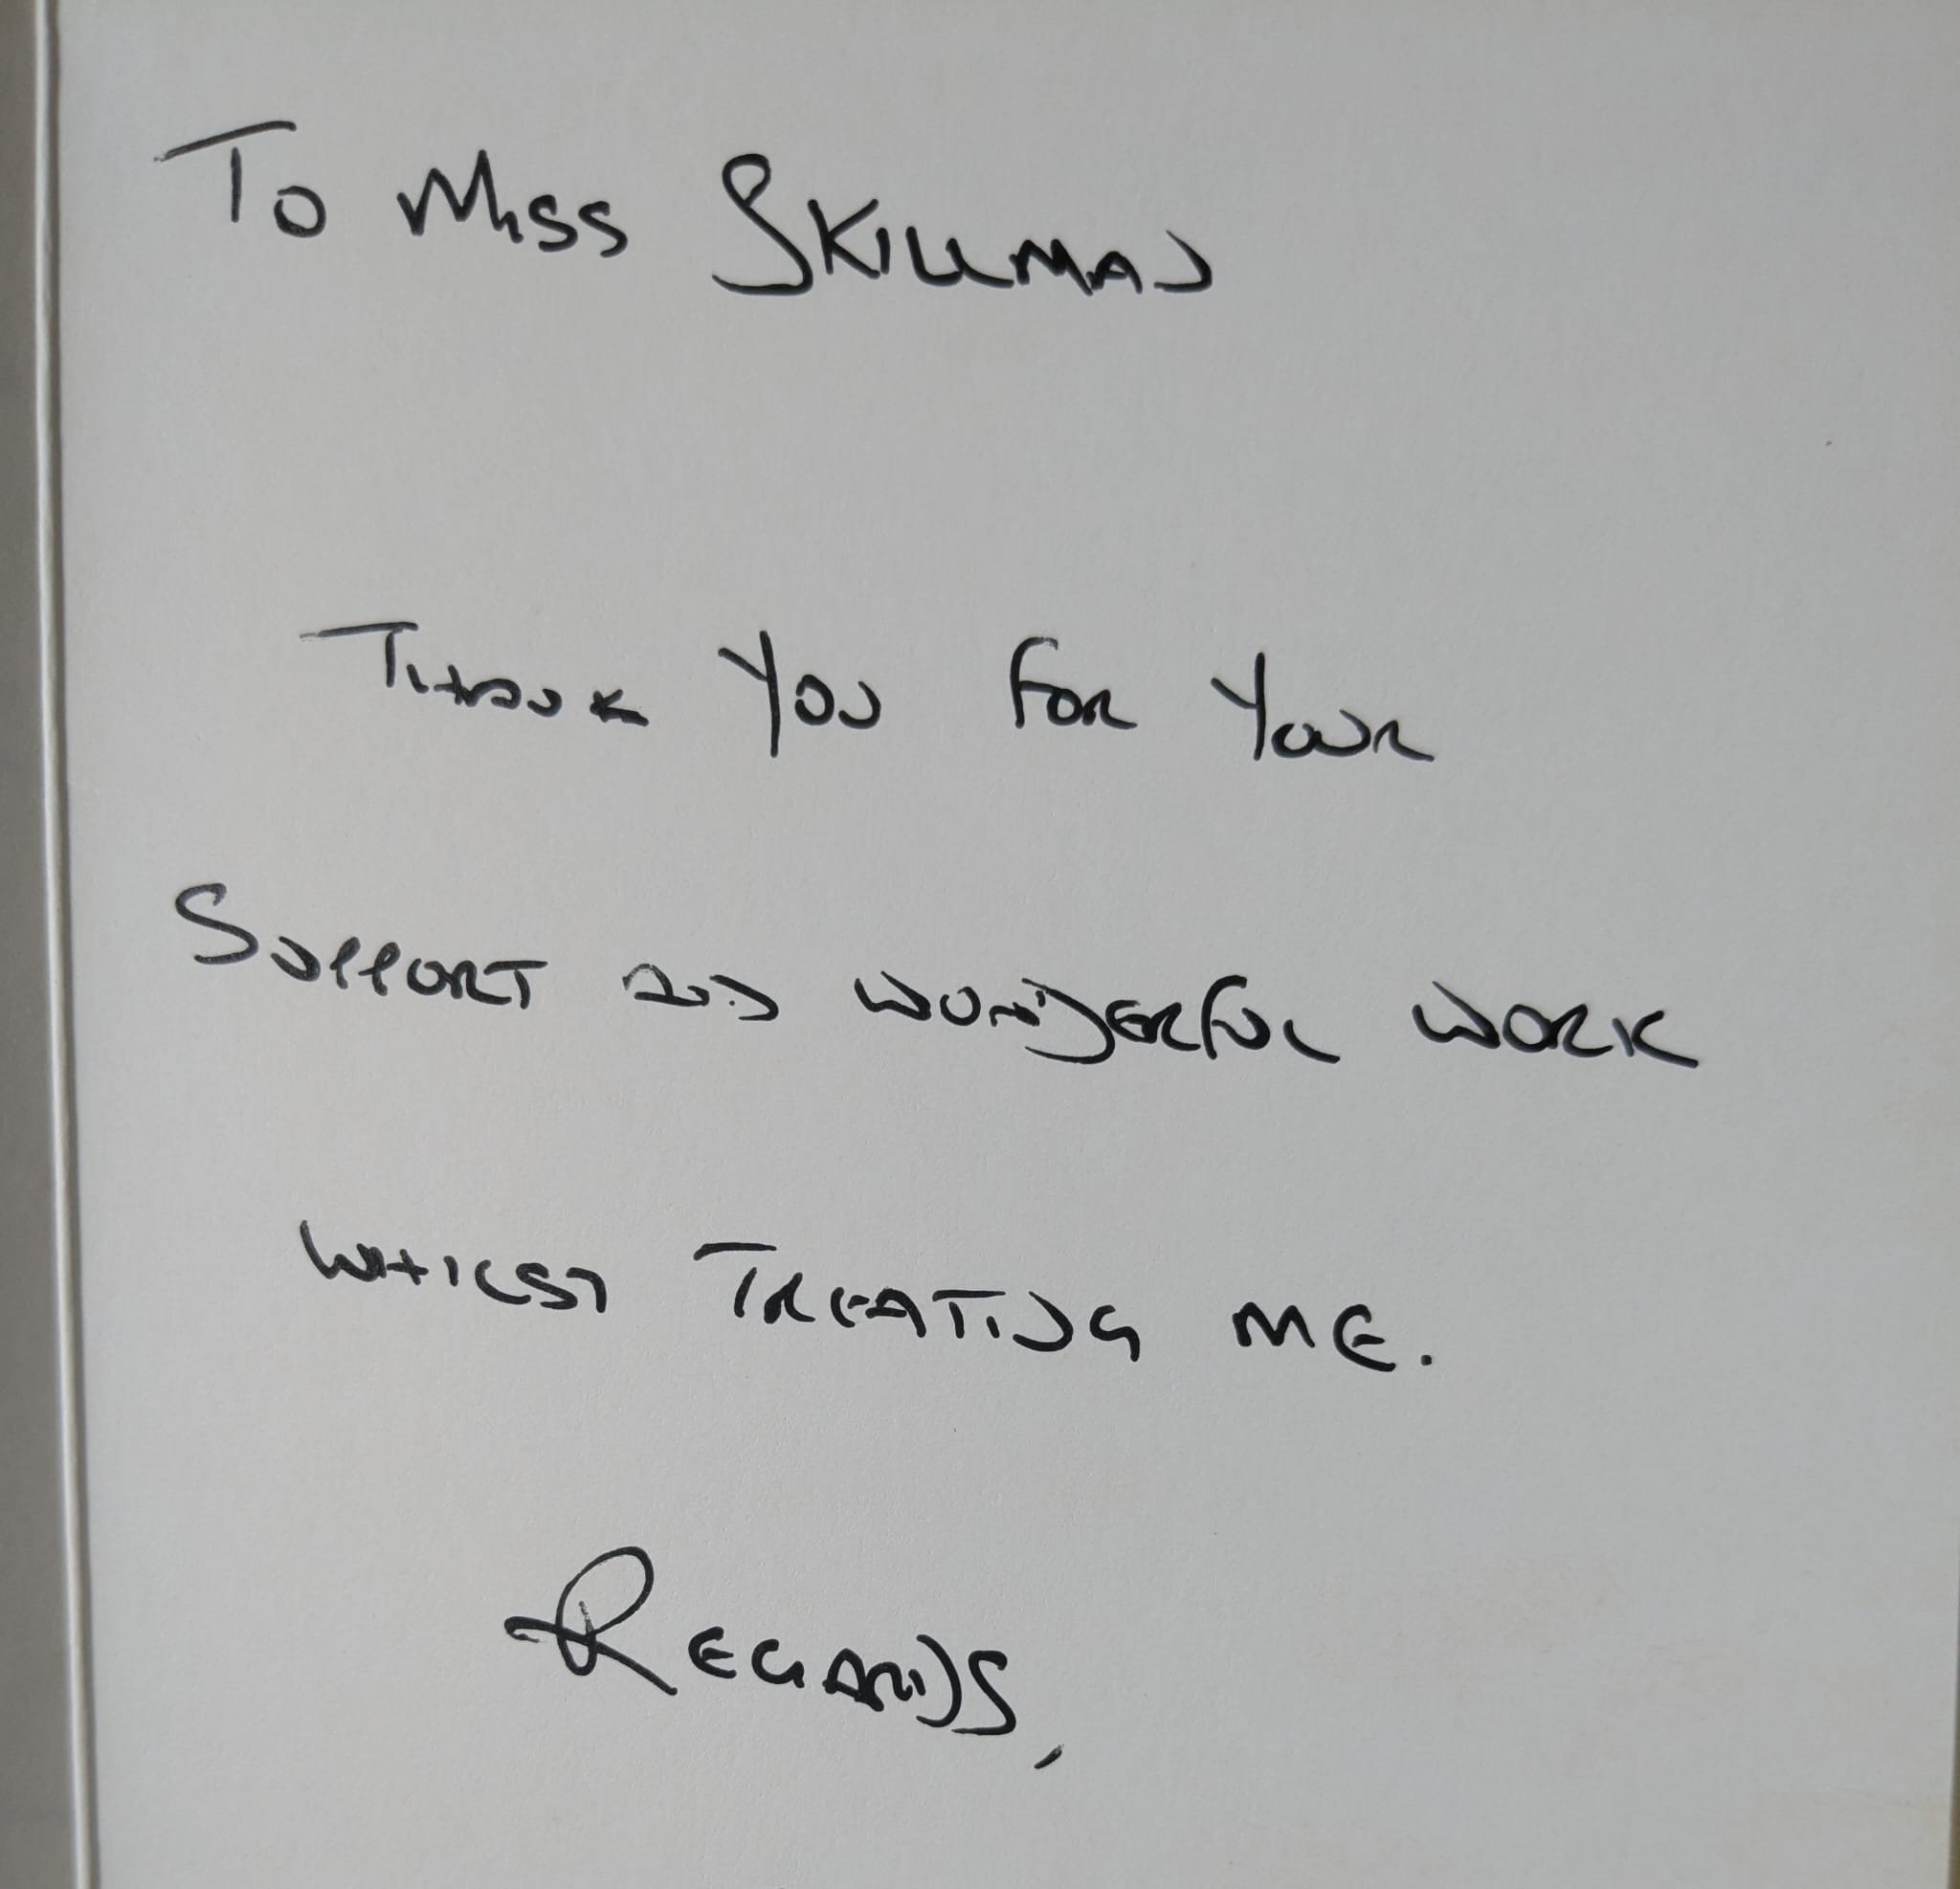 To Miss SKILLMAN
THANK YOU FOR YOUR
SUPPORT AND WONDERFUL WORK
WHILST TREATING ME.
REGARDS,